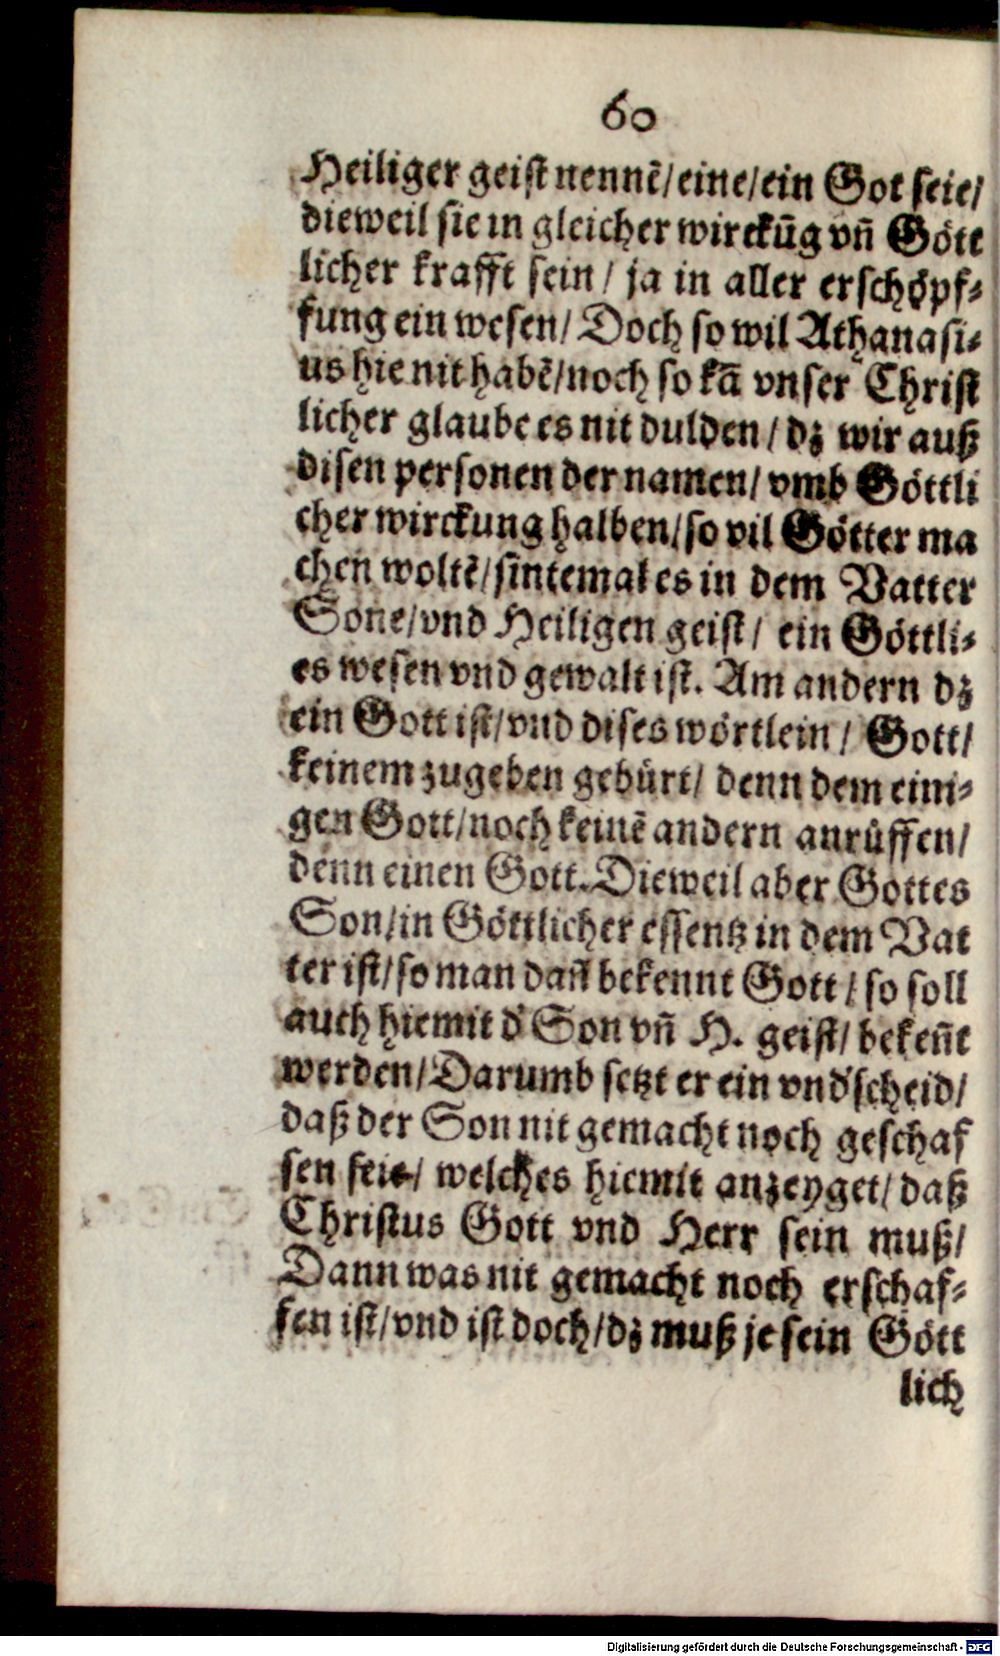 60
Heiliger geist nennē/eine/ein Got seie/
dieweil sie in gleicher wirckūg vñ Gött
licher krafft sein/ ja in aller erschöpf⸗
fung ein wesen/ Doch so wil Athanasi⸗
us hie nit habē/noch so kā vnser Christ
licher glaube es nit dulden/ dz wir auß
disen personen der namen/ vmb Göttli
cher wirckung halben/so vil Götter ma
chen woltē/sintemal es in dem Vatter
Sone/vnd Heiligen geist/ ein Göttli⸗
es wesen vnd gewalt ist. Am andern dz
ein Gott ist/vnd dises wörtlein/ Gott/
keinem zugeben gebürt/ denn dem eini⸗
gen Gott/noch keinē andern anrüffen/
denn einen Gott. Dieweil aber Gottes
Son/in Göttlicher essentz in dem Vat
ter ist/so man dañ bekennt Gott/ so soll
auch hiemit d' Son vñ H. geist/ bekeñt
werden/Darumb setzt er ein vnd'scheid/
daß der Son nit gemacht noch geschaf
fen seie/ welches hiemit anzeyget/ daß
Christus Gott vnd Herr sein muß/
Dann was nit gemacht noch erschaf⸗
fen ist/vnd ist doch/dz muß je sein Gött
lich
Digitalisierung gefördert durch die Deutsche Forschungsgemeinschaft - DFG